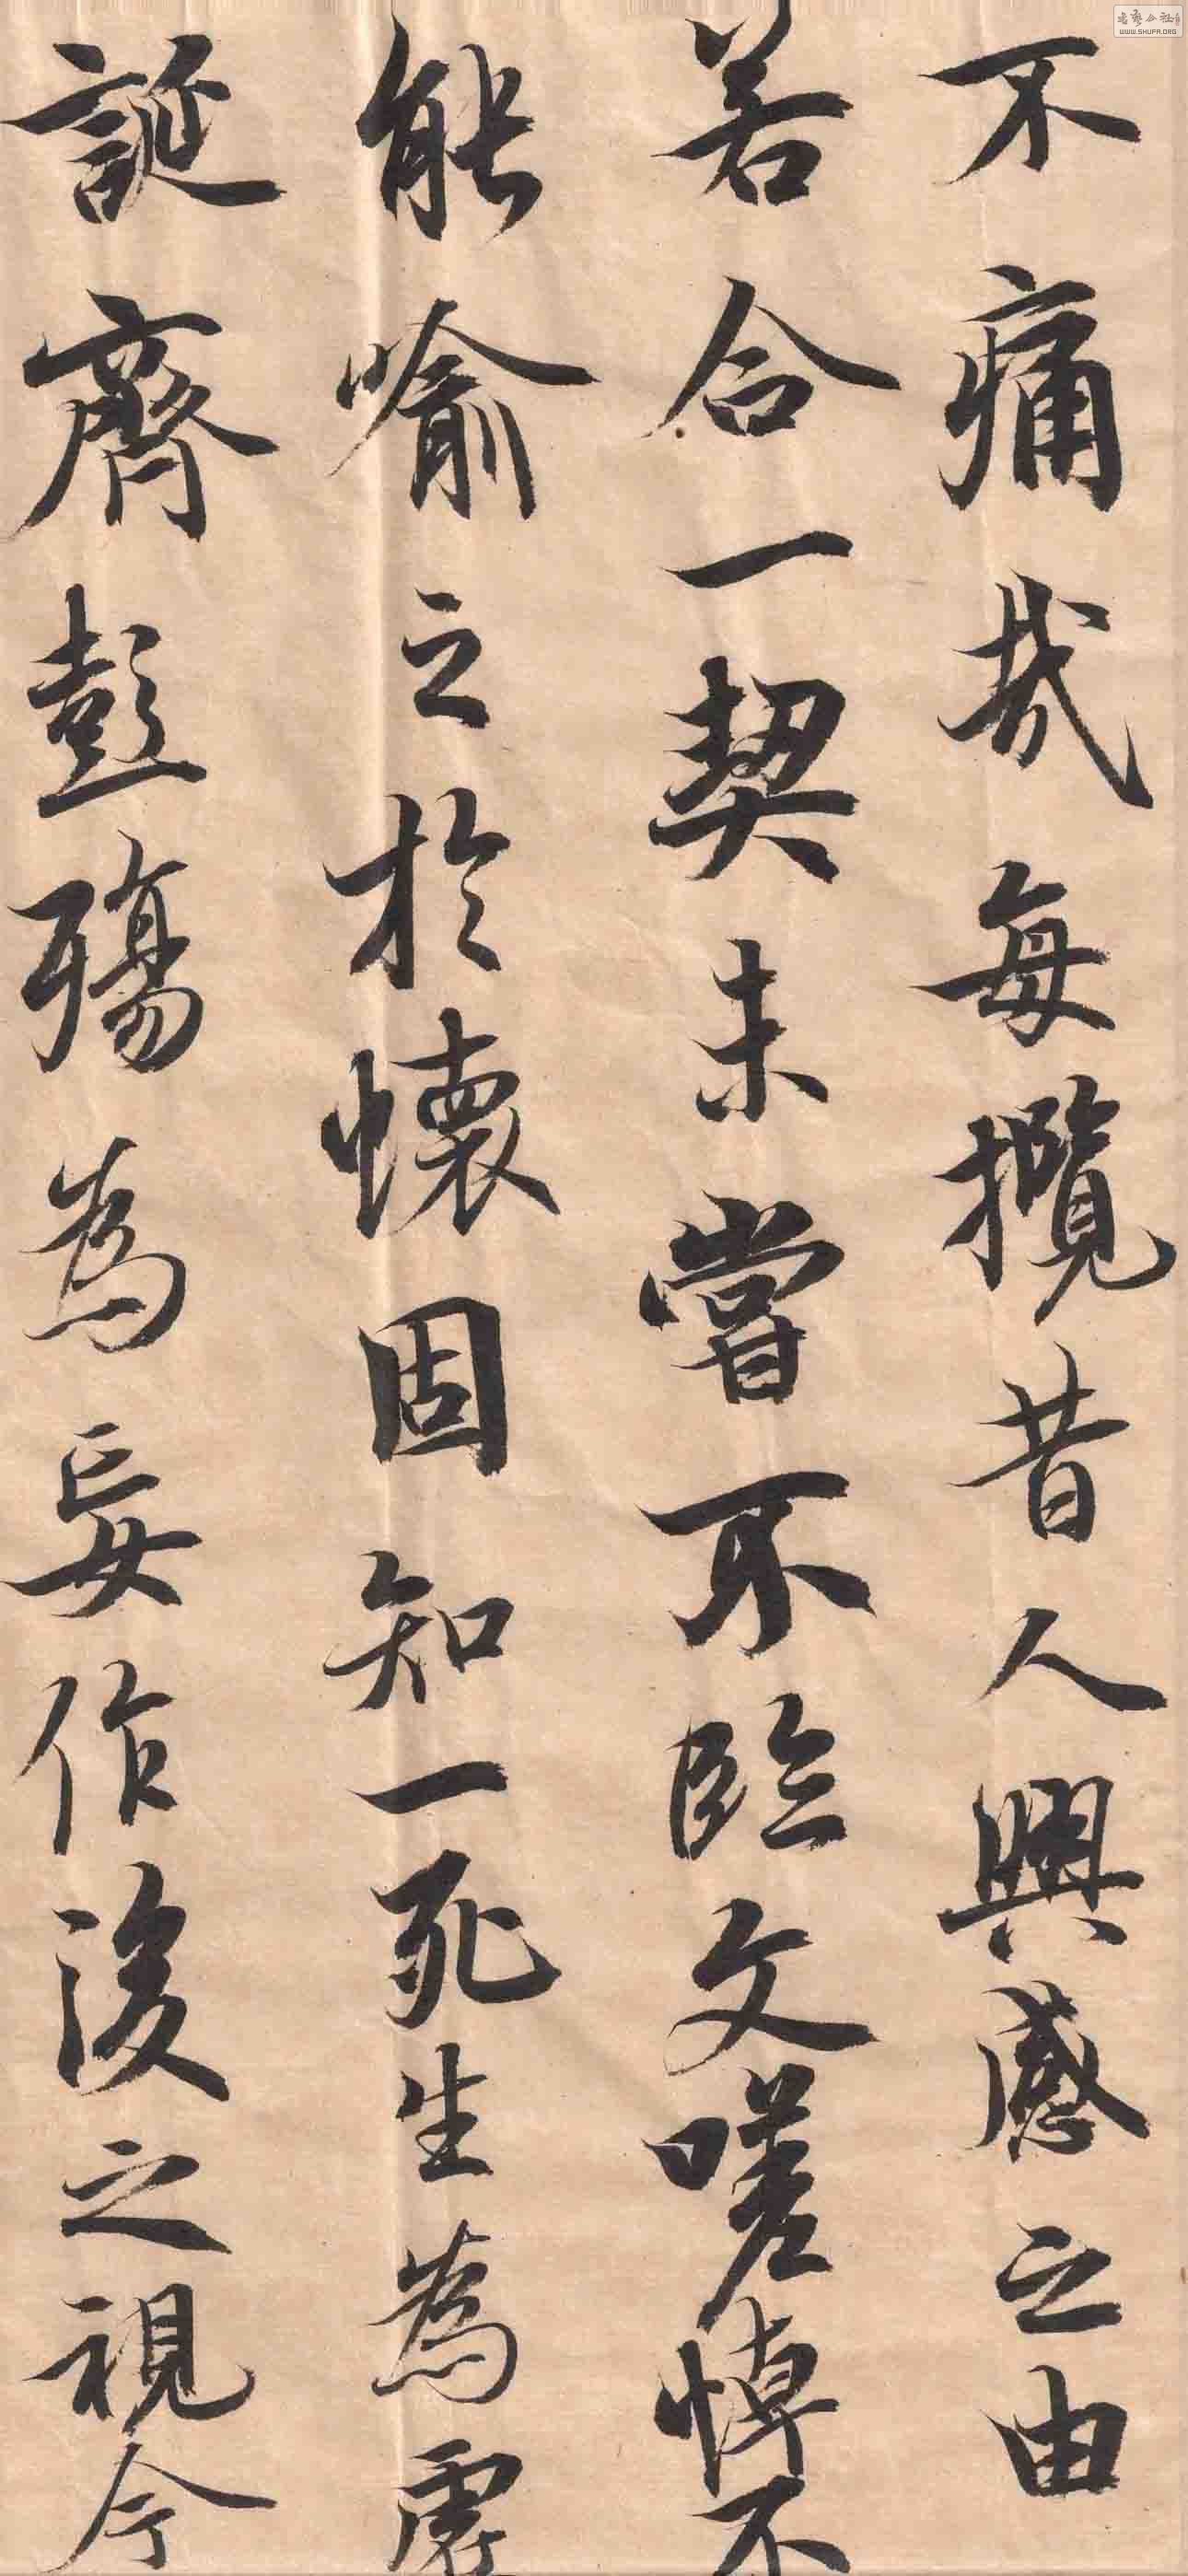 不痛哉每攬昔人興感之由
若合一契未嘗不臨文嗟悼不
能喻之於懷固知一死生為虛
誕齊彭殤為妄作後之視今
WWW.SHUFA.ORG